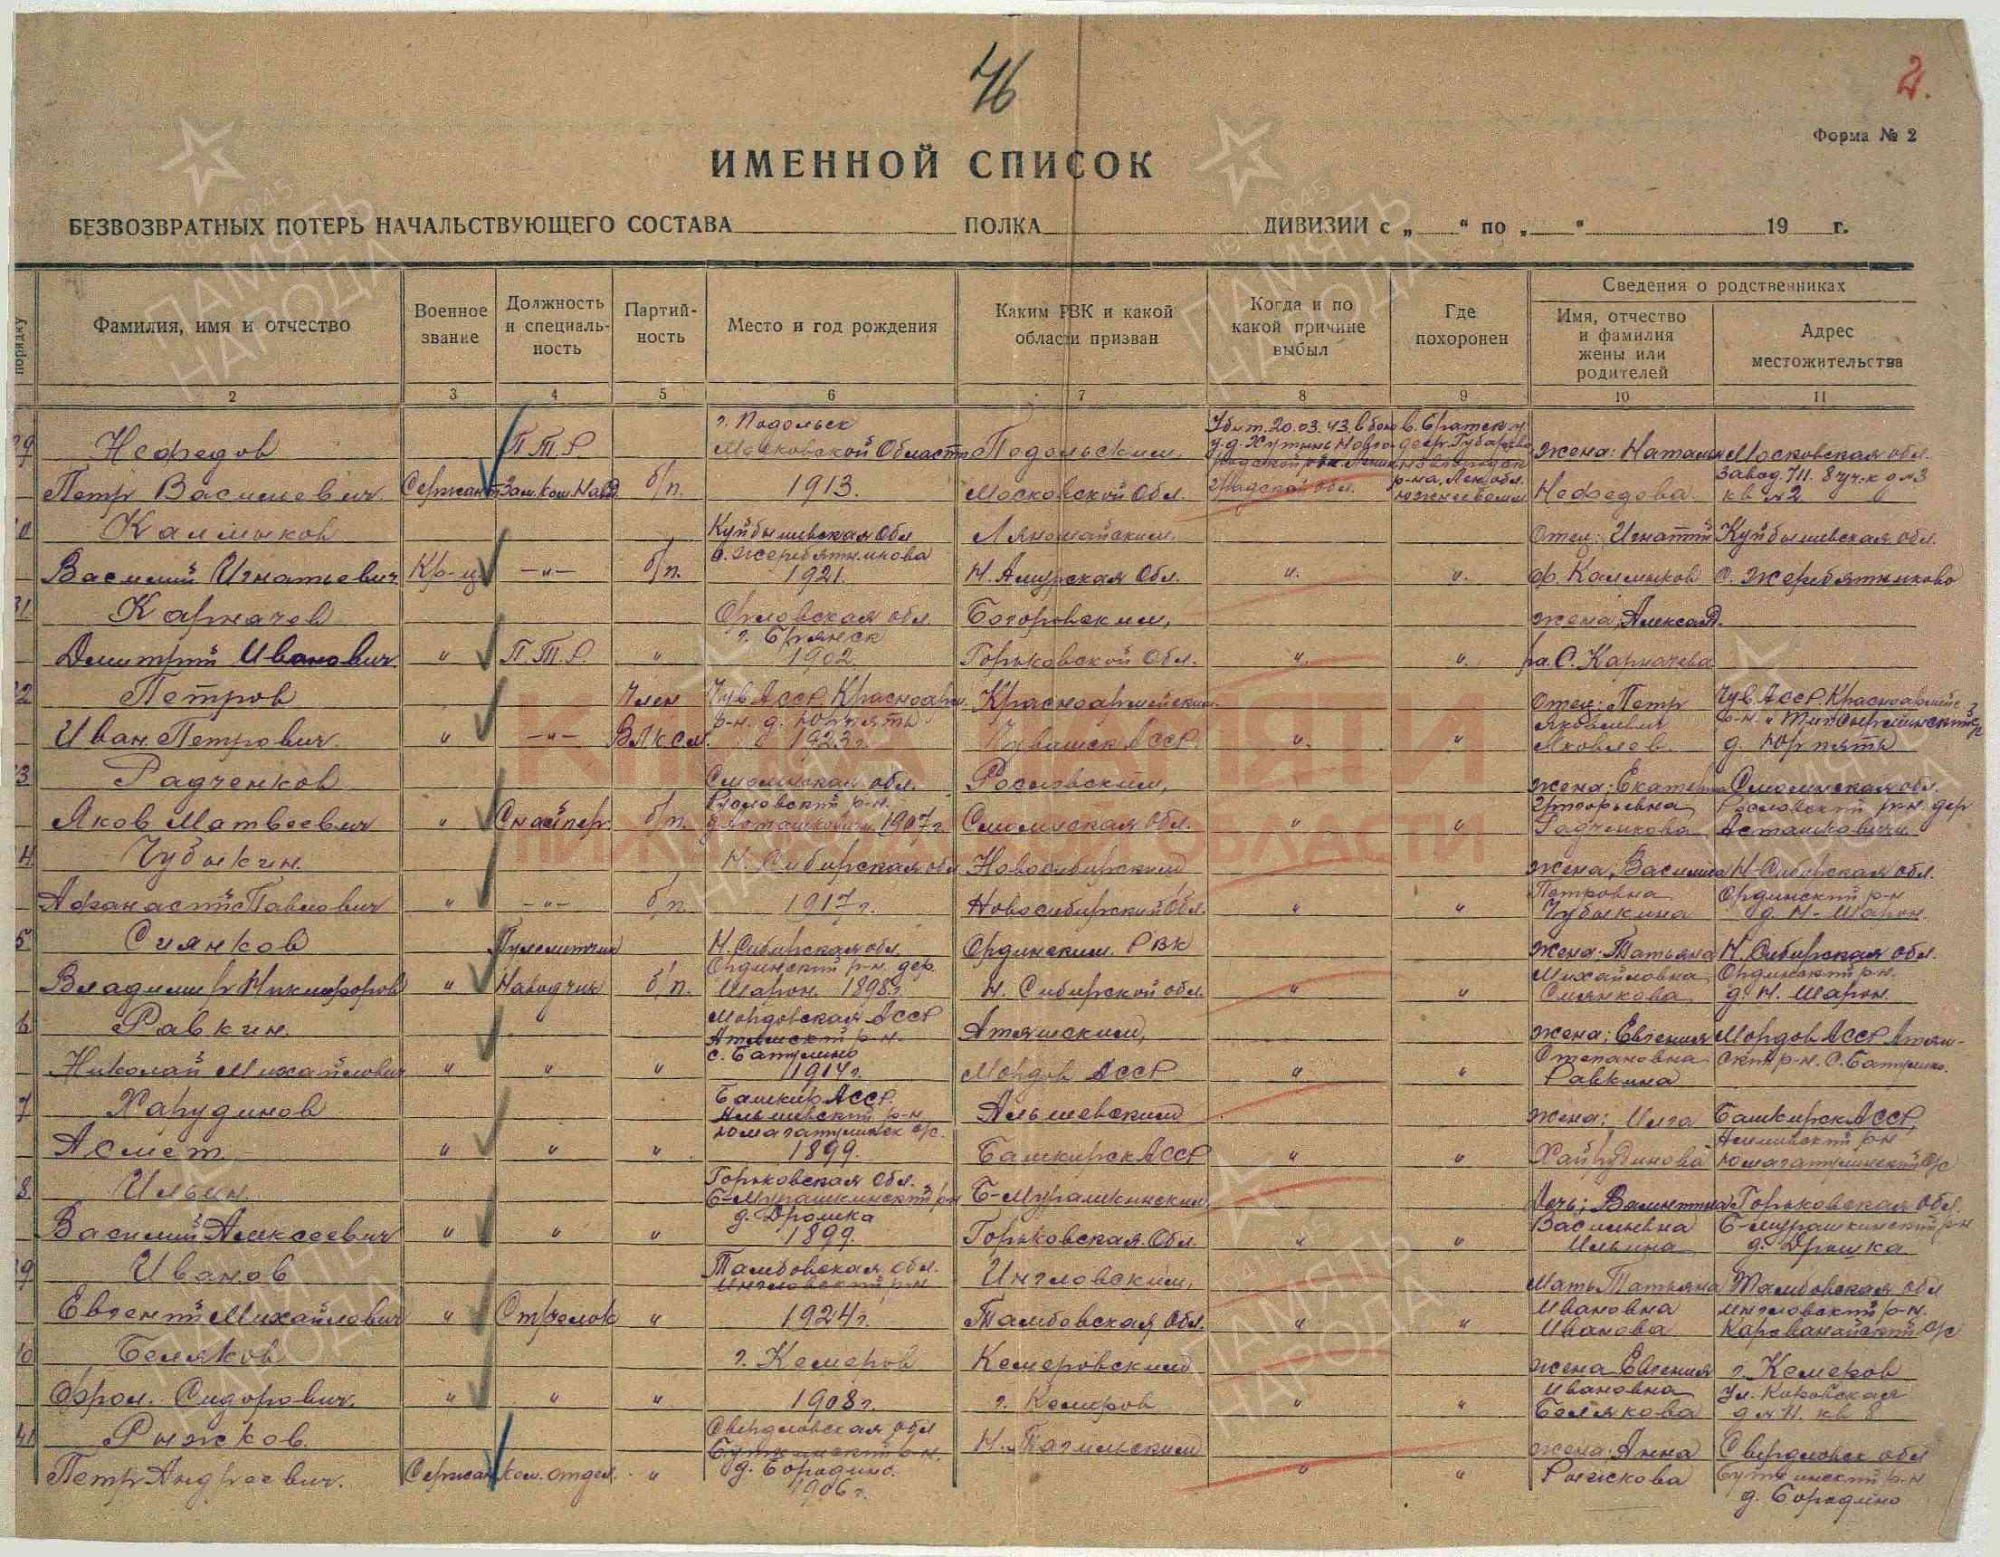 76
2.
Форма № 2
ИМЕННОЙ СПИСОК
БЕЗВОЗВРАТНЫХ ПОТЕРЬ НАЧАЛЬСТВУЮЩЕГО СОСТАВА ПОЛКА ДИВИЗИИ с „ “ по „ “ 19 г.
порядку
Фамилия, имя и отчество
Военное звание
Должность и специаль-ность
Партий-ность
Место и год рождения
Каким РВК и какой области призван
Когда и по какой причине выбыл
Где похоронен
Сведения о родственниках
Имя, отчество и фамилия жены или родителей
Адрес местожительства
2 3 4 5 6 7 8 9 10 11
Нефедов
Петр Васильевич Сержант
П.Т.Р.
б/п.
г. Подольск
Московской Области
1913.
Подольским,
Московской Обл.
Убит. 20.03.43. в бою
у д. Хутынь
жена: Наталья
Нефедова
Московская обл.
Завод. 711.
кв №2
Калмыков
Василий Игнатьевич Кр-ц —„— б/п.
Куйбышевская Обл
1921.
Н. Амурская Обл.
„ „
Отец: Игнатий
ф. Калмыков
Куйбышевская обл.
Карначев
Дмитрий Иванович „ П.Т.Р. „
Орловская обл
г. Брянск
1902.
Горьковской Обл.
„ „
жена, Александ.
ра. С. Карначева
Петров
Иван Петрович. „ —„—
Член
ВЛКСМ.
Чув АССР Красноарм.
р-н. д. Юрпять
1923 г.
Красноармейским.
Чувашск АССР.
„ „
Отец: Петр
Яковлевич
Яковлев.
Чув АССР Красноармейс
д. Юрпять
Радченков
Яков Матвеевич „ Снайпер. б/п.
Смоленская обл.
Рословский р-н.
1907 г.
Рославским,
Смоленская обл.
„ „
жена: Екатерина
Григорьевна
Радченкова
Смоленская обл.
Рословский р-н. дер
Асташковичи
Чубыкин.
Афанасий Павлович „ —„— б/п
Н. Сибирская обл
1917 г.
Новосибирским
Новосибирский обл.
„ „
жена, Василиса
Петровна
Чубыкина
Н-Сибирская обл.
Ордынский р-н
д. Н-Шарон.
Сиянков
Владимир Никифоров „
Пулеметчик
Наводчик б/п.
Н. Сибирская обл.
Ордынский р-н. дер.
Шарон. 1898 г.
Ордынским. РВК
Н. Сибирской обл.
„ „
жена: Татьяна
Михайловна
Сиянкова
Н. Сибирская обл.
Ордынский р-н.
д. Н. Шарон.
Равкин.
Николай Михайлович „ „ „
Мордовская АССР
Атяшский р-н.
с. Батушно
1914 г.
Атяшским,
Мордов АССР
„ „
жена: Евгения
Степановна
Равкина
Мордов АССР Атяш-
Харудинов
Асмет. „ „ „
Башкир АССР.
Альшевский р-н
1899.
Альшевским
Башкирск АССР
„ „
жена:
Хайрудинова
Башкирск АССР,
Ильин.
Василий Алексеевич „ „ „
Горьковская Обл.
Б-Мурашкинский р-н
1899.
Б-Мурашкинским,
Горьковская Обл.
„ „
Дочь: Валентина
Васильевна
Ильина
Горьковская Обл.
Б-Мурашкинский р-н
Иванов
Евгений Михайлович „ Стрелок „
Тамбовская обл.
1924 г.
Тамбовская Обл.
„ „
Мать Татьяна
Ивановна
Иванова
Тамбовская обл
Беляков
Фрол. Сидорович. „ „ „
г. Кемеров
1908 г.
Кемеровским
г. Кемеров
„ „
жена Евгения
Ивановна
Белякова
г. Кемеров
ул. Кировская
кв 8
41
Рыжков.
Петр Андреевич. Сержан Ком. отдел. „
Свердловская обл
д. Бородино.
1906 г.
Н. Тагильским
„ „
жена: Анна
Рыжкова
Свердловск обл
д. Бородино
ПАМЯТЬ НАРОДА
1941-1945
КНИГА ПАМЯТИ
НИЖЕГОРОДСКОЙ ОБЛАСТИ